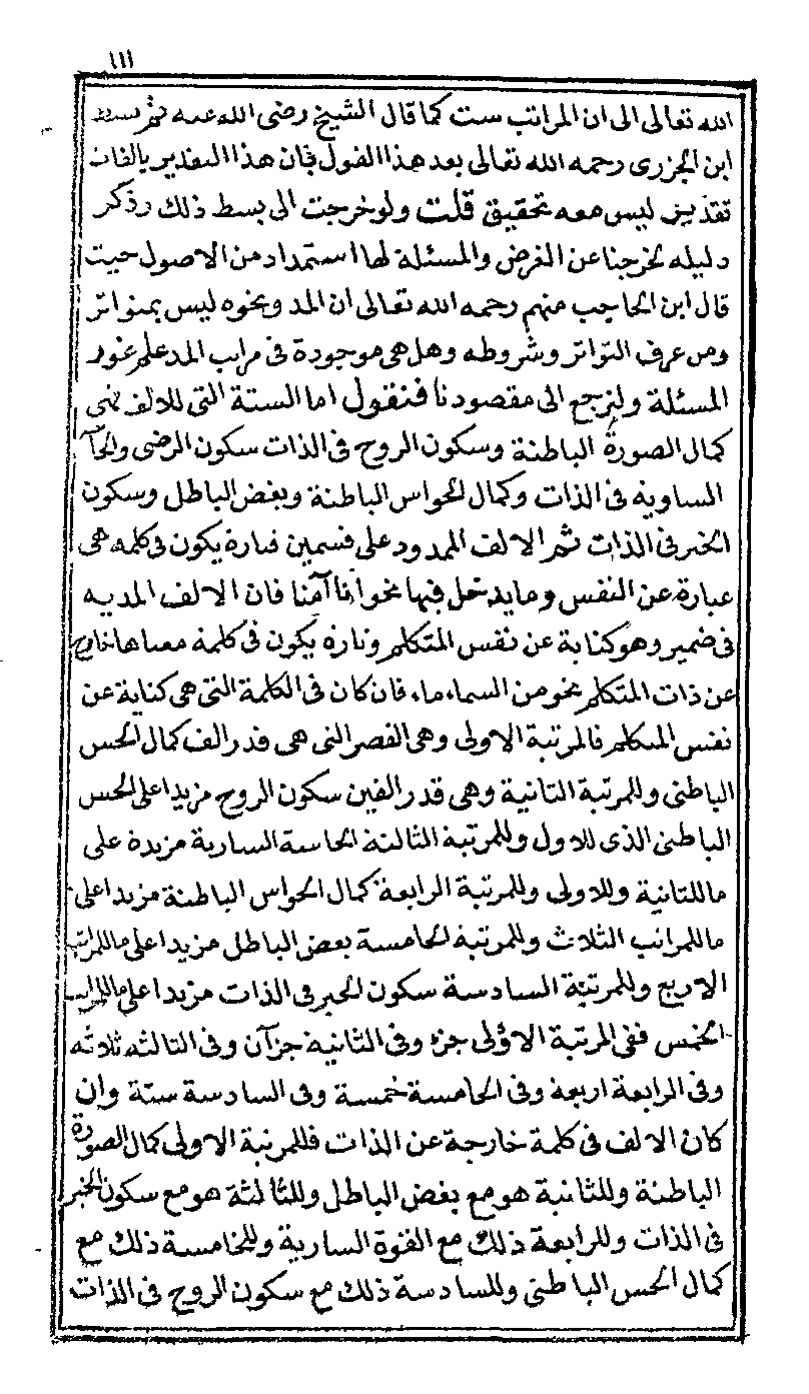 ١١١
الله تعالى الى ان المراتب ست كما قال الشيخ رضى الله عنه ثم
ابن الجزرى رحمه الله تعالى بعد هذا القول فان هذا التقدير بالالفات
تقدير ليس معه تحقيق قلت ولو خرجت الى بسط ذلك وذكر
دليله لخرجنا عن الغرض والمسئلة لها استمداد من الاصول حيث
قال ابن الحاجب منهم رحمه الله تعالى ان المد ونحوه ليس بمتواتر
ومن عرف التواتر وشروطه وهل هى موجودة فى مراتب المد علم غور
المسئلة ولنرجع الى مقصودنا فنقول اما الستة التى للالف فهى
كمال الصورة الباطنة وسكون الروح فى الذات سكون الرضى والحآ
الساوية فى الذات وكمال الحواس الباطنة وبغض الباطل وسكون
الخير فى الذات ثم الالف الممدود على قسمين فتارة يكون فى كلمه هى
عبارة عن النفس وما يدخل فيها نحو انا آمنا فان الالف المديه
فى ضمير وهو كناية عن نفس المتكلم وتارة يكون فى كلمة معناها خارج
عن ذات المتكلم نحو من السماء ماء فان كان فى الكلمة التى هى كناية عن
نفس المتكلم فالمرتبة الاولى وهى القصر التى هى قدر الف كمال الحس
الباطنى وللمرتبة الثانية وهى قدر الفين سكون الروح مزيدا على الحس
الباطنى الذى للاول وللمرتبة الثالثة الحاسة السارية مزيدة على
ما للثانية وللاولى وللمرتبة الرابعة كمال الحواس الباطنة مزيدا على
ما للمراتب الثلاث وللمرتبة الخامسة بغض الباطل مزيدا على ما للمراتب
الاربع وللمرتبة السادسة سكون الخير فى الذات مزيدا على ما للمراتب
الخمس ففى المرتبة الاولى جزء وفى الثانية جزآن وفى الثالثه ثلاثه
وفى الرابعة اربعة وفى الخامسة خمسة وفى السادسة ستة وان
كان الالف فى كلمة خارجة عن الذات فللمرتبة الاولى كمال الصورة
الباطنة وللثانية هو مع بغض الباطل وللثالثة هو مع سكون الخير
فى الذات وللرابعة ذلك مع القوة السارية وللخامسة ذلك مع
كمال الحس الباطنى وللسادسة ذلك مع سكون الروح فى الذات